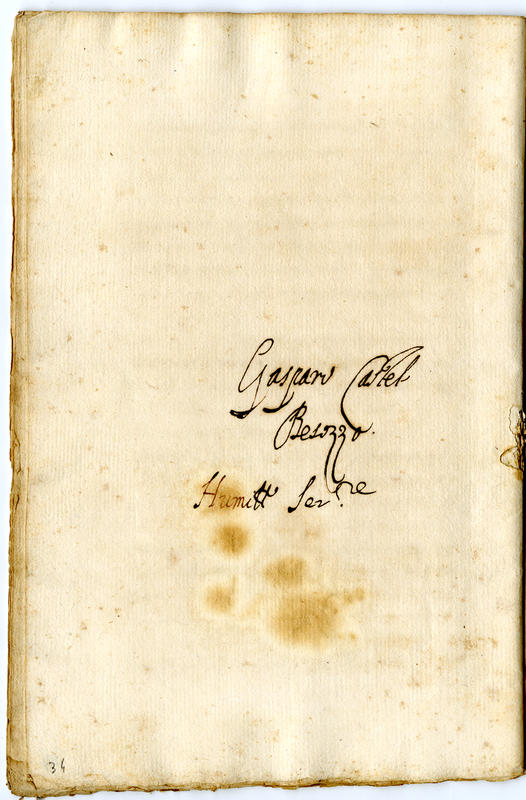 Gasparo Castel
Besozzo.
Humill.o Ser.re
34